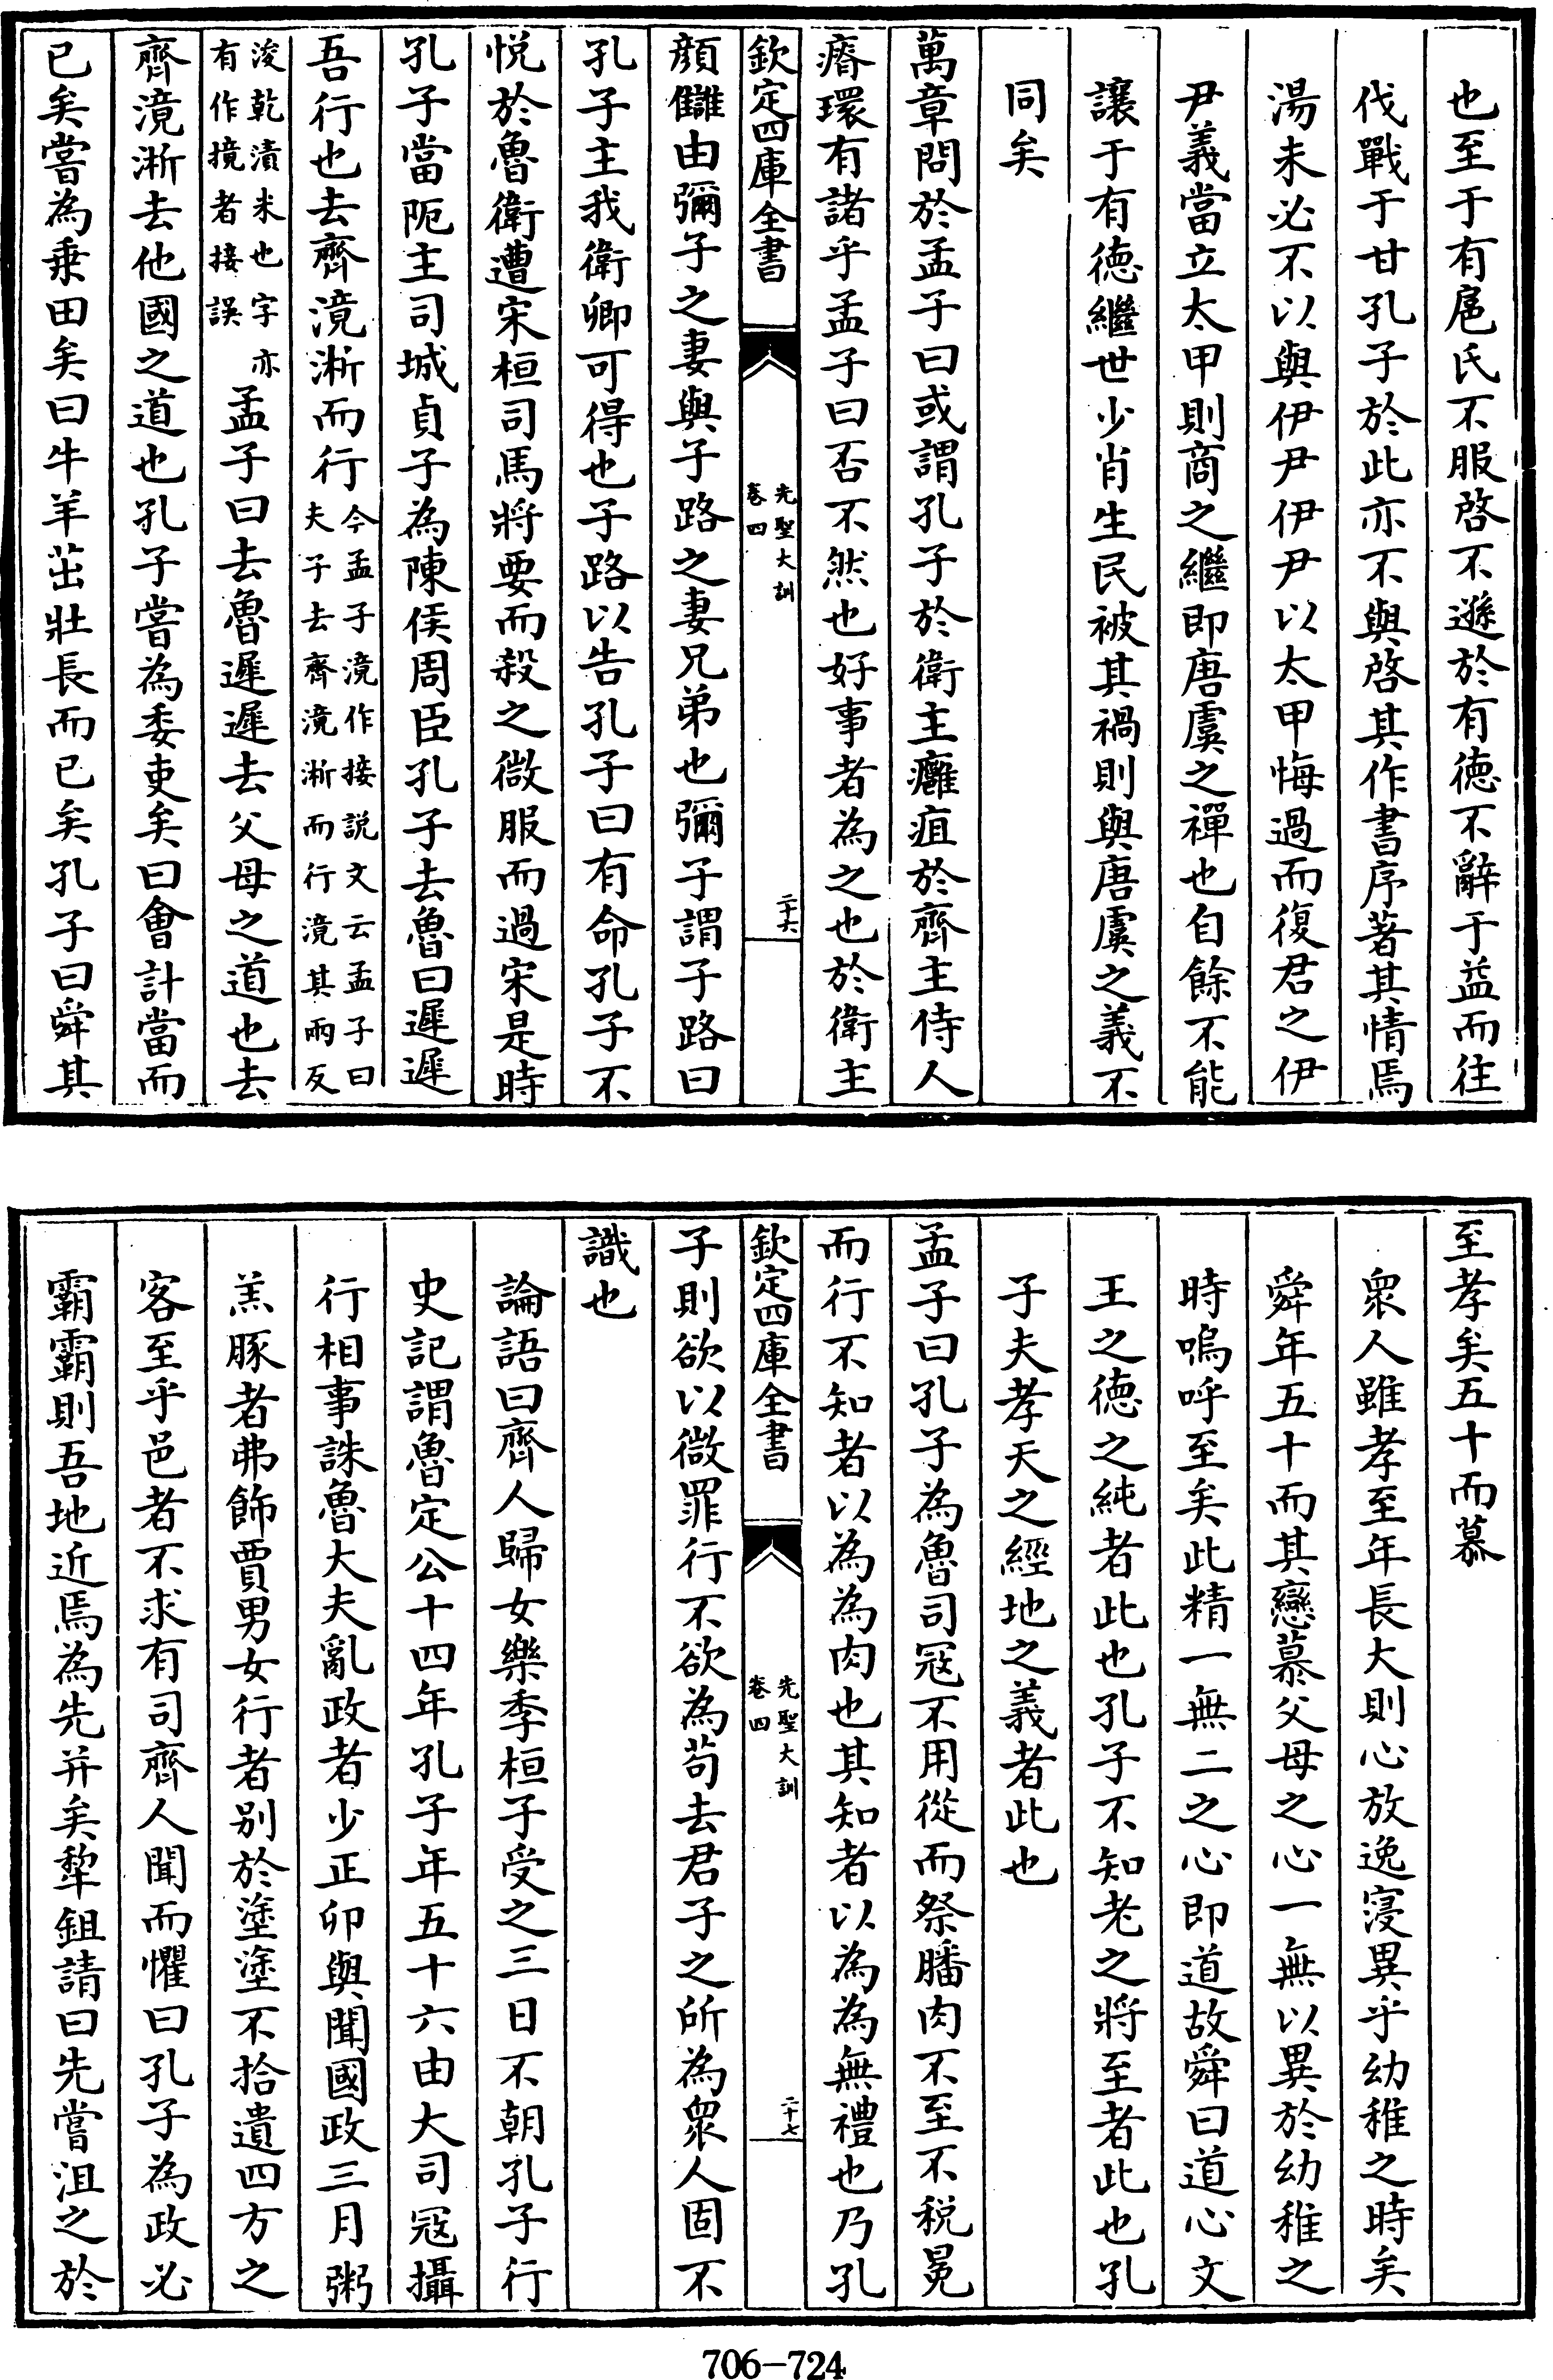 也至于有扈氏不服啓不遜於有德不辭于益而往
伐戰于甘孔子於此亦不與啓其作書序著其情焉
湯未必不以與伊尹伊尹以太甲悔過而復君之伊
尹義當立太甲則商之繼即唐虞之禪也自餘不能
讓于有德繼世少肖生民被其禍則與唐虞之義不
同矣
萬章問於孟子曰或謂孔子於衛主癰疽於齊主侍人
瘠環有諸乎孟子曰否不然也好事者為之也於衛主
欽定四庫全書
先聖大訓
卷四
二十六
顔讎由彌子之妻與子路之妻兄弟也彌子謂子路曰
孔子主我衛卿可得也子路以告孔子曰有命孔子不
悦於魯衛遭宋桓司馬將要而殺之微服而過宋是時
孔子當阨主司城貞子為陳侯周臣孔子去魯曰遲遲
吾行也去齊滰淅而行今孟子滰作接説文云孟子曰
夫子去齊滰淅而行滰其兩反
浚乾漬米也字亦
有作㨄者接誤孟子曰去魯遲遲去父母之道也去
齊滰淅去他國之道也孔子嘗為委吏矣曰會計當而
已矣嘗為乗田矣曰牛羊茁壯長而已矣孔子曰舜其
至孝矣五十而慕
衆人雖孝至年長大則心放逸寖異乎幼稚之時矣
舜年五十而其戀慕父母之心一無以異於幼稚之
時嗚呼至矣此精一無二之心即道故舜曰道心文
王之德之純者此也孔子不知老之將至者此也孔
子夫孝天之經地之義者此也
孟子曰孔子為魯司冦不用從而祭膰肉不至不税冕
而行不知者以為為肉也其知者以為為無禮也乃孔
欽定四庫全書
先聖大訓
卷四
二十七
子則欲以微罪行不欲為苟去君子之所為衆人固不
識也
論語曰齊人歸女樂季桓子受之三日不朝孔子行
史記謂魯定公十四年孔子年五十六由大司冦攝
行相事誅魯大夫亂政者少正卯與聞國政三月粥
羔豚者弗飾賈男女行者别於塗塗不拾遺四方之
客至乎邑者不求有司齊人聞而懼曰孔子為政必
霸霸則吾地近焉為先并矣犂鉏請曰先嘗沮之於
706-724